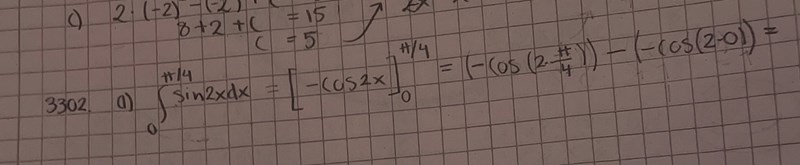 c) 2·(-2)² - (-2)
8+2+C = 15
C = 5
3302. a) ∫₀^(π/4) sin2xdx = [-cos2x]₀^(π/4) = (-cos(2·π/4)) - (-cos(2·0)) =